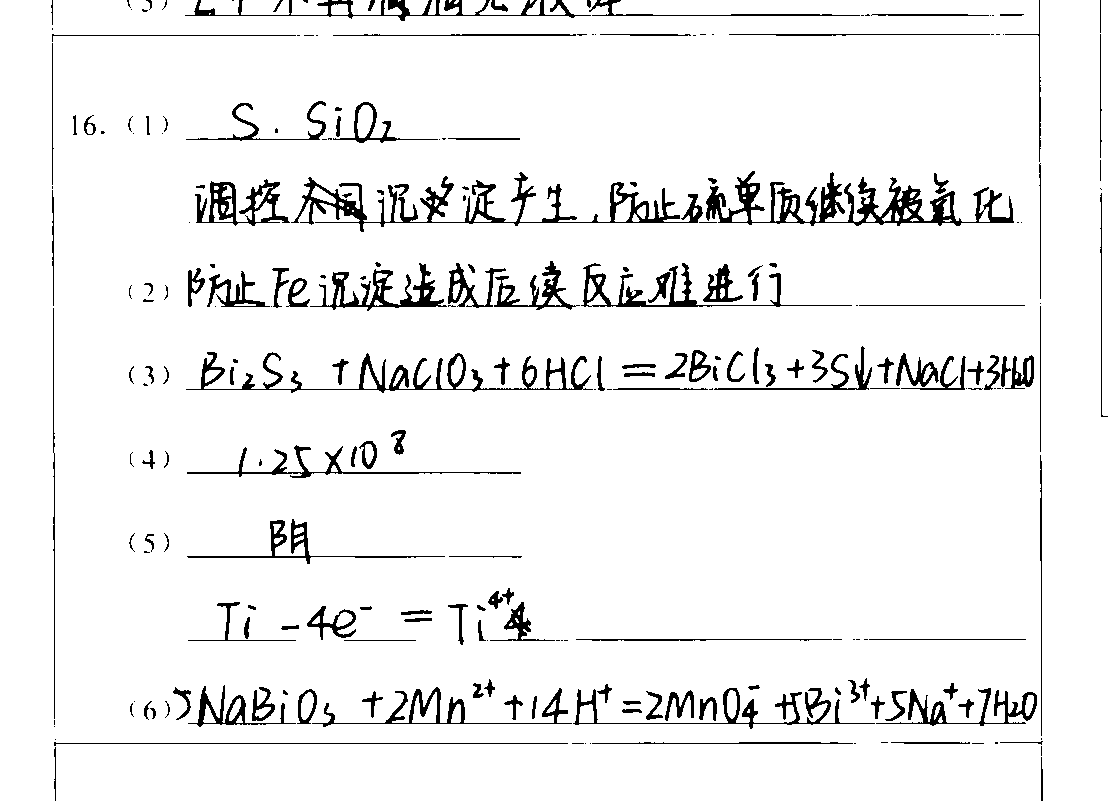 16. (1) S. SiO₂
调控沉淀产生,防止硫单质继续被氧化
(2) 防止Fe沉淀造成后续反应难进行
(3) Bi₂S₃ + NaClO₃ + 6HCl = 2BiCl₃ + 3S↓ + NaCl + 3H₂O
(4) 1.25×10⁸
(5) 阴
Ti - 4e⁻ = Ti⁴⁺
(6) 5NaBiO₃ + 2Mn²⁺ + 14H⁺ = 2MnO₄⁻ + 5Bi³⁺ + 5Na⁺ + 7H₂O